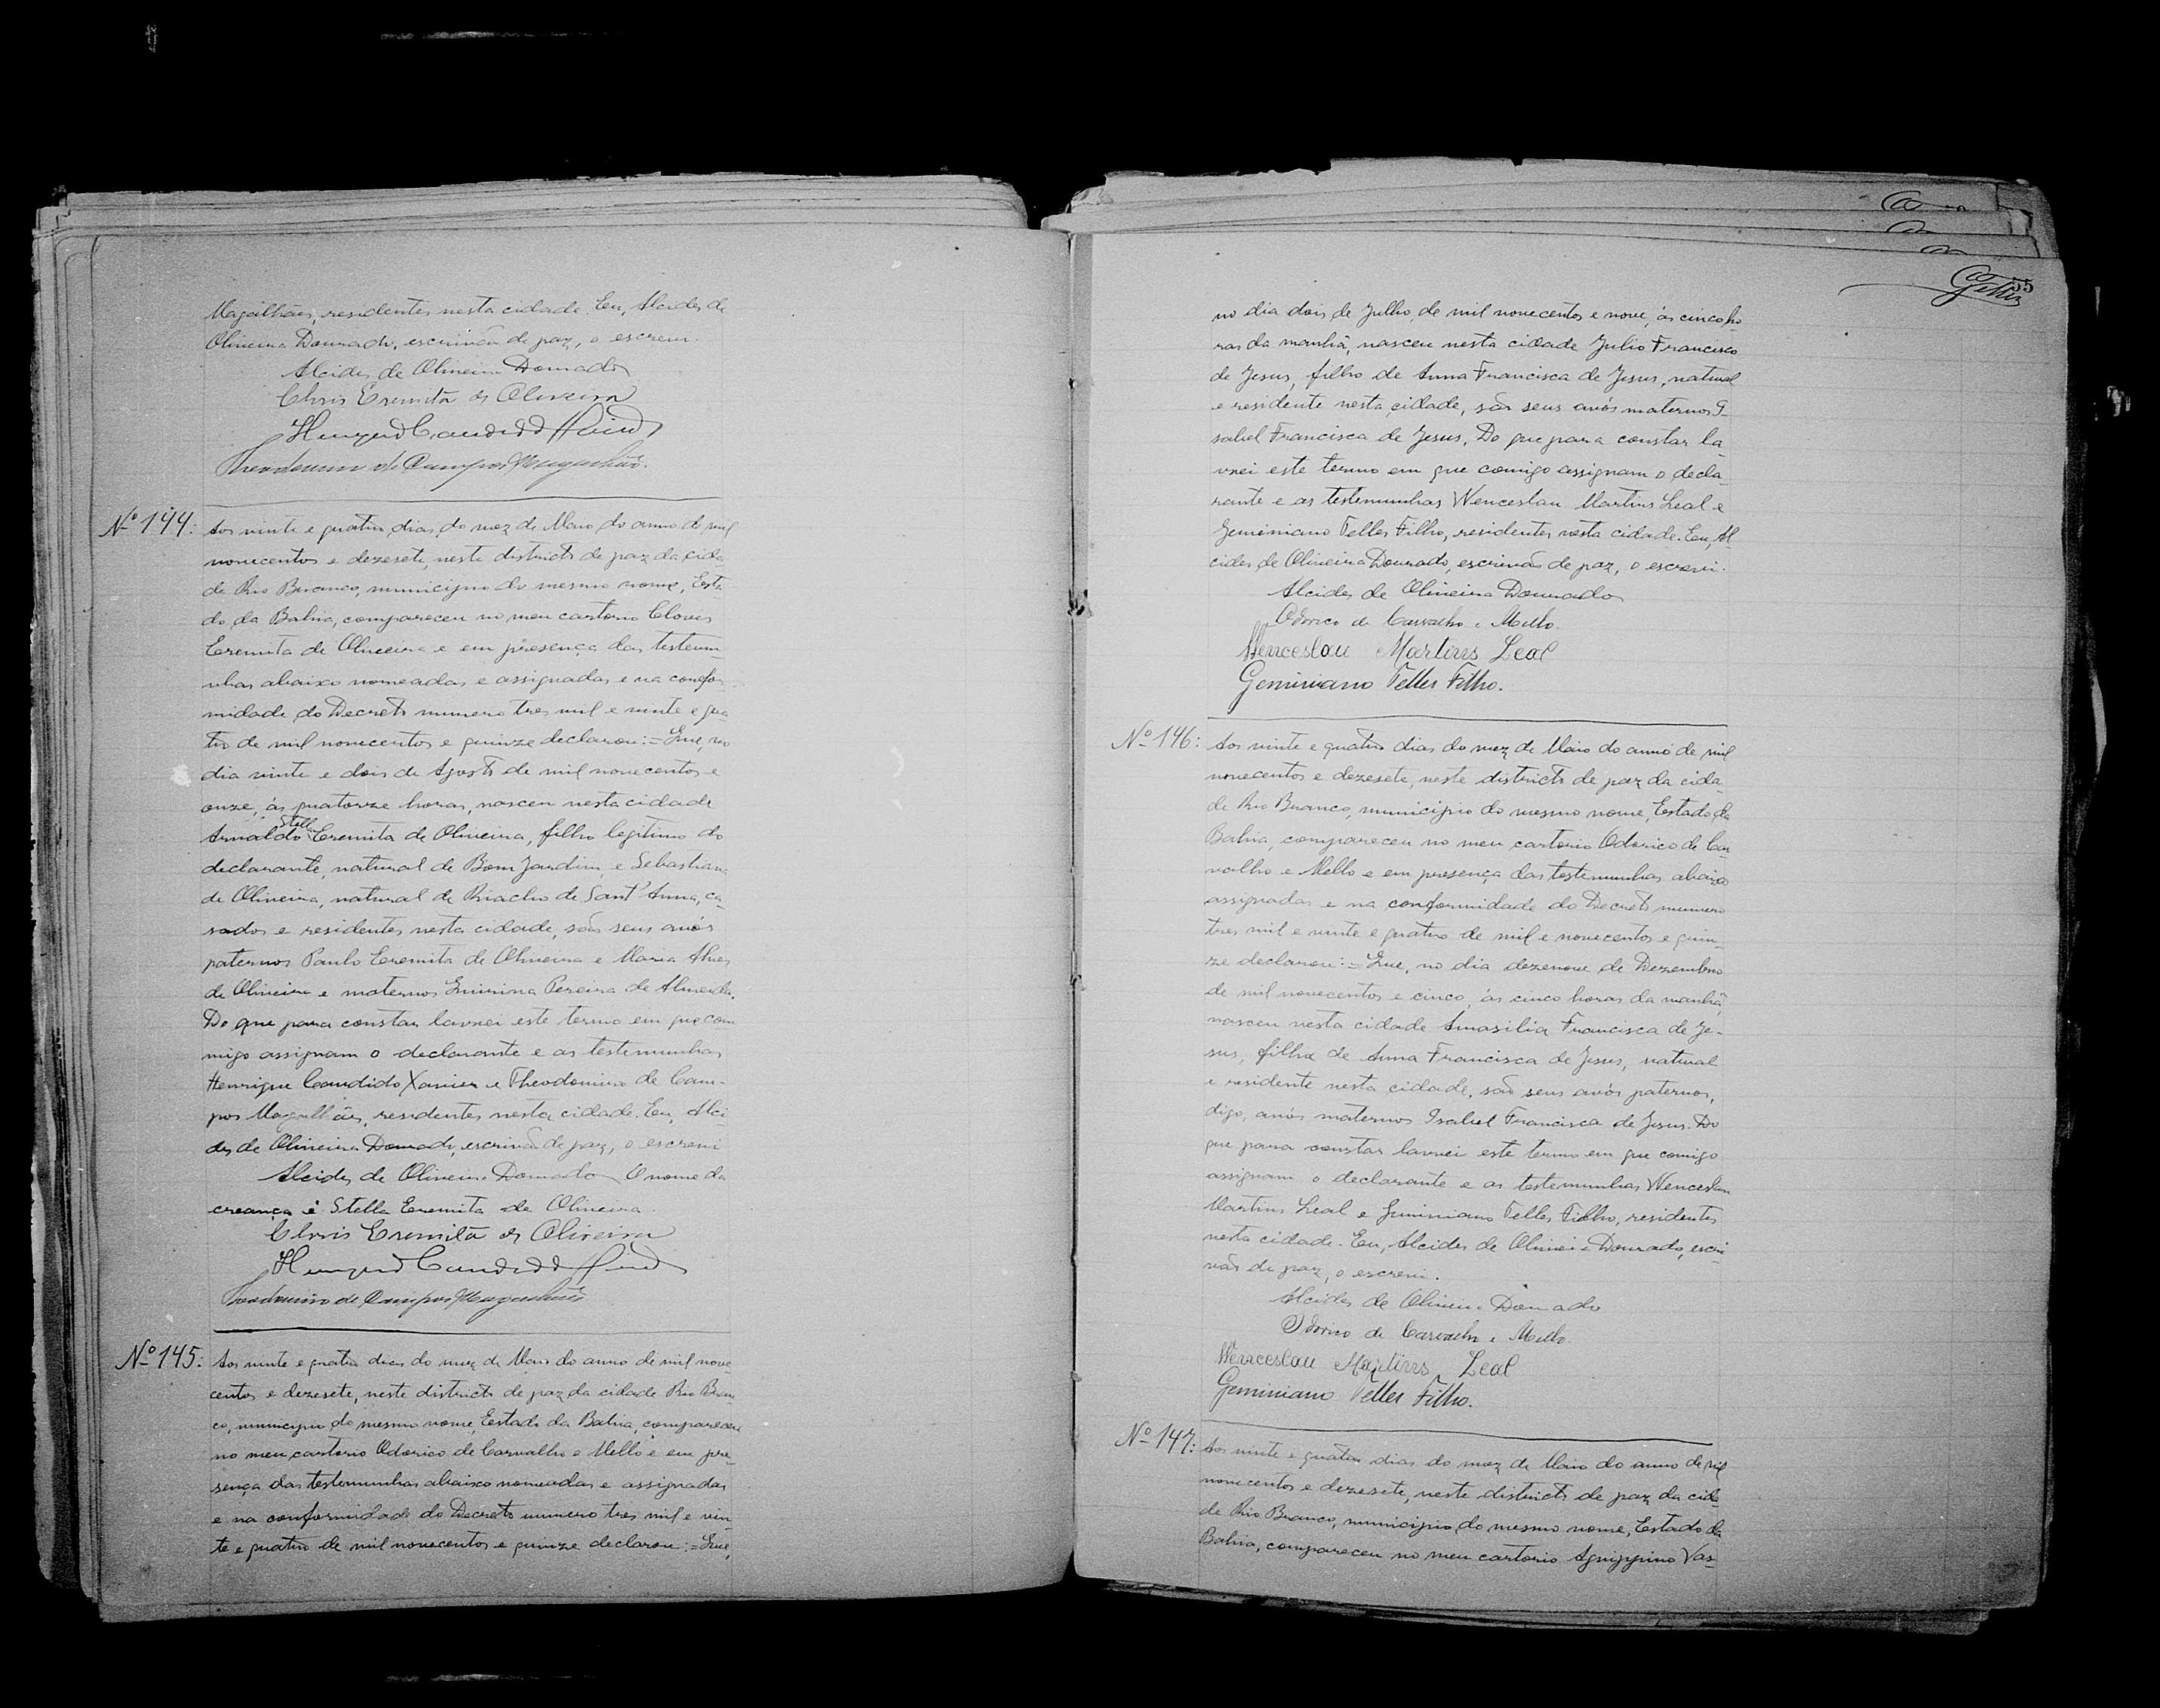 Magalhães, residentes nesta cidade. Eu, Alcides de
Oliveira Dourado, escrivão de paz, o escrevi.
Alcides de Oliveira Dourado
Clovis Eremita de Oliveira
Theodomiro de Campos Magalhães.
Nº 144:
Aos vinte e quatro dias do mez de Maio do anno de mil
novecentos e dezesete, neste districto de paz da cida
de Rio Branco, municipio do mesmo nome, Esta
do da Bahia, compareceu no meu cartorio Clovis
Eremita de Oliveira e em presença das testemu
nhas abaixo nomeadas e assignadas e na confor
midade do Decreto numero tres mil e vinte e qua
tro de mil novecentos e quinze declarou:=Que, no
dia vinte e dois de Agosto de mil novecentos e
onze, ás quatorze horas, nasceu nesta cidade
Stella
Arnaldo Eremita de Oliveira, filho legitimo do
declarante, natural de Bom Jardim, e Sebastiana
de Oliveira, natural de Riacho de Sant'Anna, ca
sados e residentes nesta cidade, são seus avós
paternos Paulo Eremita de Oliveira e Maria Alves
de Oliveira e maternos Quirina Pereira de Almeida.
Do que para constar lavrei este termo em que com
migo assignam o declarante e as testemunhas
Henrique Candido Xavier e Theodomiro de Cam-
pos Magalhães, residentes nesta cidade. Eu, Alci
des de Oliveira Dourado, escrivão de paz, o escrevi
Alcides de Oliveira Dourado O nome da
creança é Stella Eremita de Oliveira.
Clovis Eremita de Oliveira
Theodomiro de Campos Magalhães
Nº 145:
Aos vinte e quatro dias do mez de Maio do anno de mil nove
centos e dezesete, neste districto de paz da cidade Rio Bran
co, municipio do mesmo nome, Estado da Bahia, compareceu
no meu cartorio Odorico de Carvalho e Mello e em pre
sença das testemunhas abaixo nomeadas e assignadas
e na conformidade do Decreto numero tres mil e vin
te e quatro de mil novecentos e quinze declarou:=Que,
55
no dia dois de Julho, de mil novecentos e nove, ás cinco ho
ras da manhã, nasceu nesta cidade Julio Francisco
de Jesus, filho de Anna Francisca de Jesus, natural
e residente nesta cidade, são seus avós maternos I-
sabel Francisca de Jesus. Do que para constar la
vrei este termo em que comigo assignam o decla
rante e as testemunhas Wenceslau Martins Leal e
Geminiano Telles Filho, residentes nesta cidade. Eu, Al-
cides de Oliveira Dourado, escrivão de paz, o escrevi.
Alcides de Oliveira Dourado
Odorico de Carvalho e Mello.
Wenceslau Martins Leal
Geminiano Telles Filho.
Nº 146:
Aos vinte e quatro dias do mez de Maio do anno de mil
novecentos e dezesete, neste districto de paz da cida
de Rio Branco, municipio do mesmo nome, Estado da
Bahia, compareceu no meu cartorio Odorico de Car
valho e Mello e em presença das testemunhas abaixo
assignadas e na conformidade do Decreto numero
tres mil e vinte e quatro de mil e novecentos e quin-
ze declarou:=Que, no dia dezenove de Dezembro
de mil novecentos e cinco, ás cinco horas da manhã,
nasceu nesta cidade Amasilia Francisca de Je-
sus, filha de Anna Francisca de Jesus, natural
e residente nesta cidade, são seus avós paternos,
digo, avós maternos Isabel Francisca de Jesus. Do
que para constar lavrei este termo em que comigo
assignam o declarante e as testemunhas Wenceslau
Martins Leal e Geminiano Telles Filho, residentes
nesta cidade. Eu, Alcides de Oliveira Dourado, escri
vão de paz, o escrevi.
Alcides de Oliveira Dourado
Odorico de Carvalho e Mello.
Wenceslau Martins Leal
Geminiano Telles Filho.
Nº 147:
Aos vinte e quatro dias do mez de Maio do anno de mil
novecentos e dezesete, neste districto de paz da cida
de Rio Branco, municipio do mesmo nome, Estado da
Bahia, compareceu no meu cartorio Agrippino Vas-